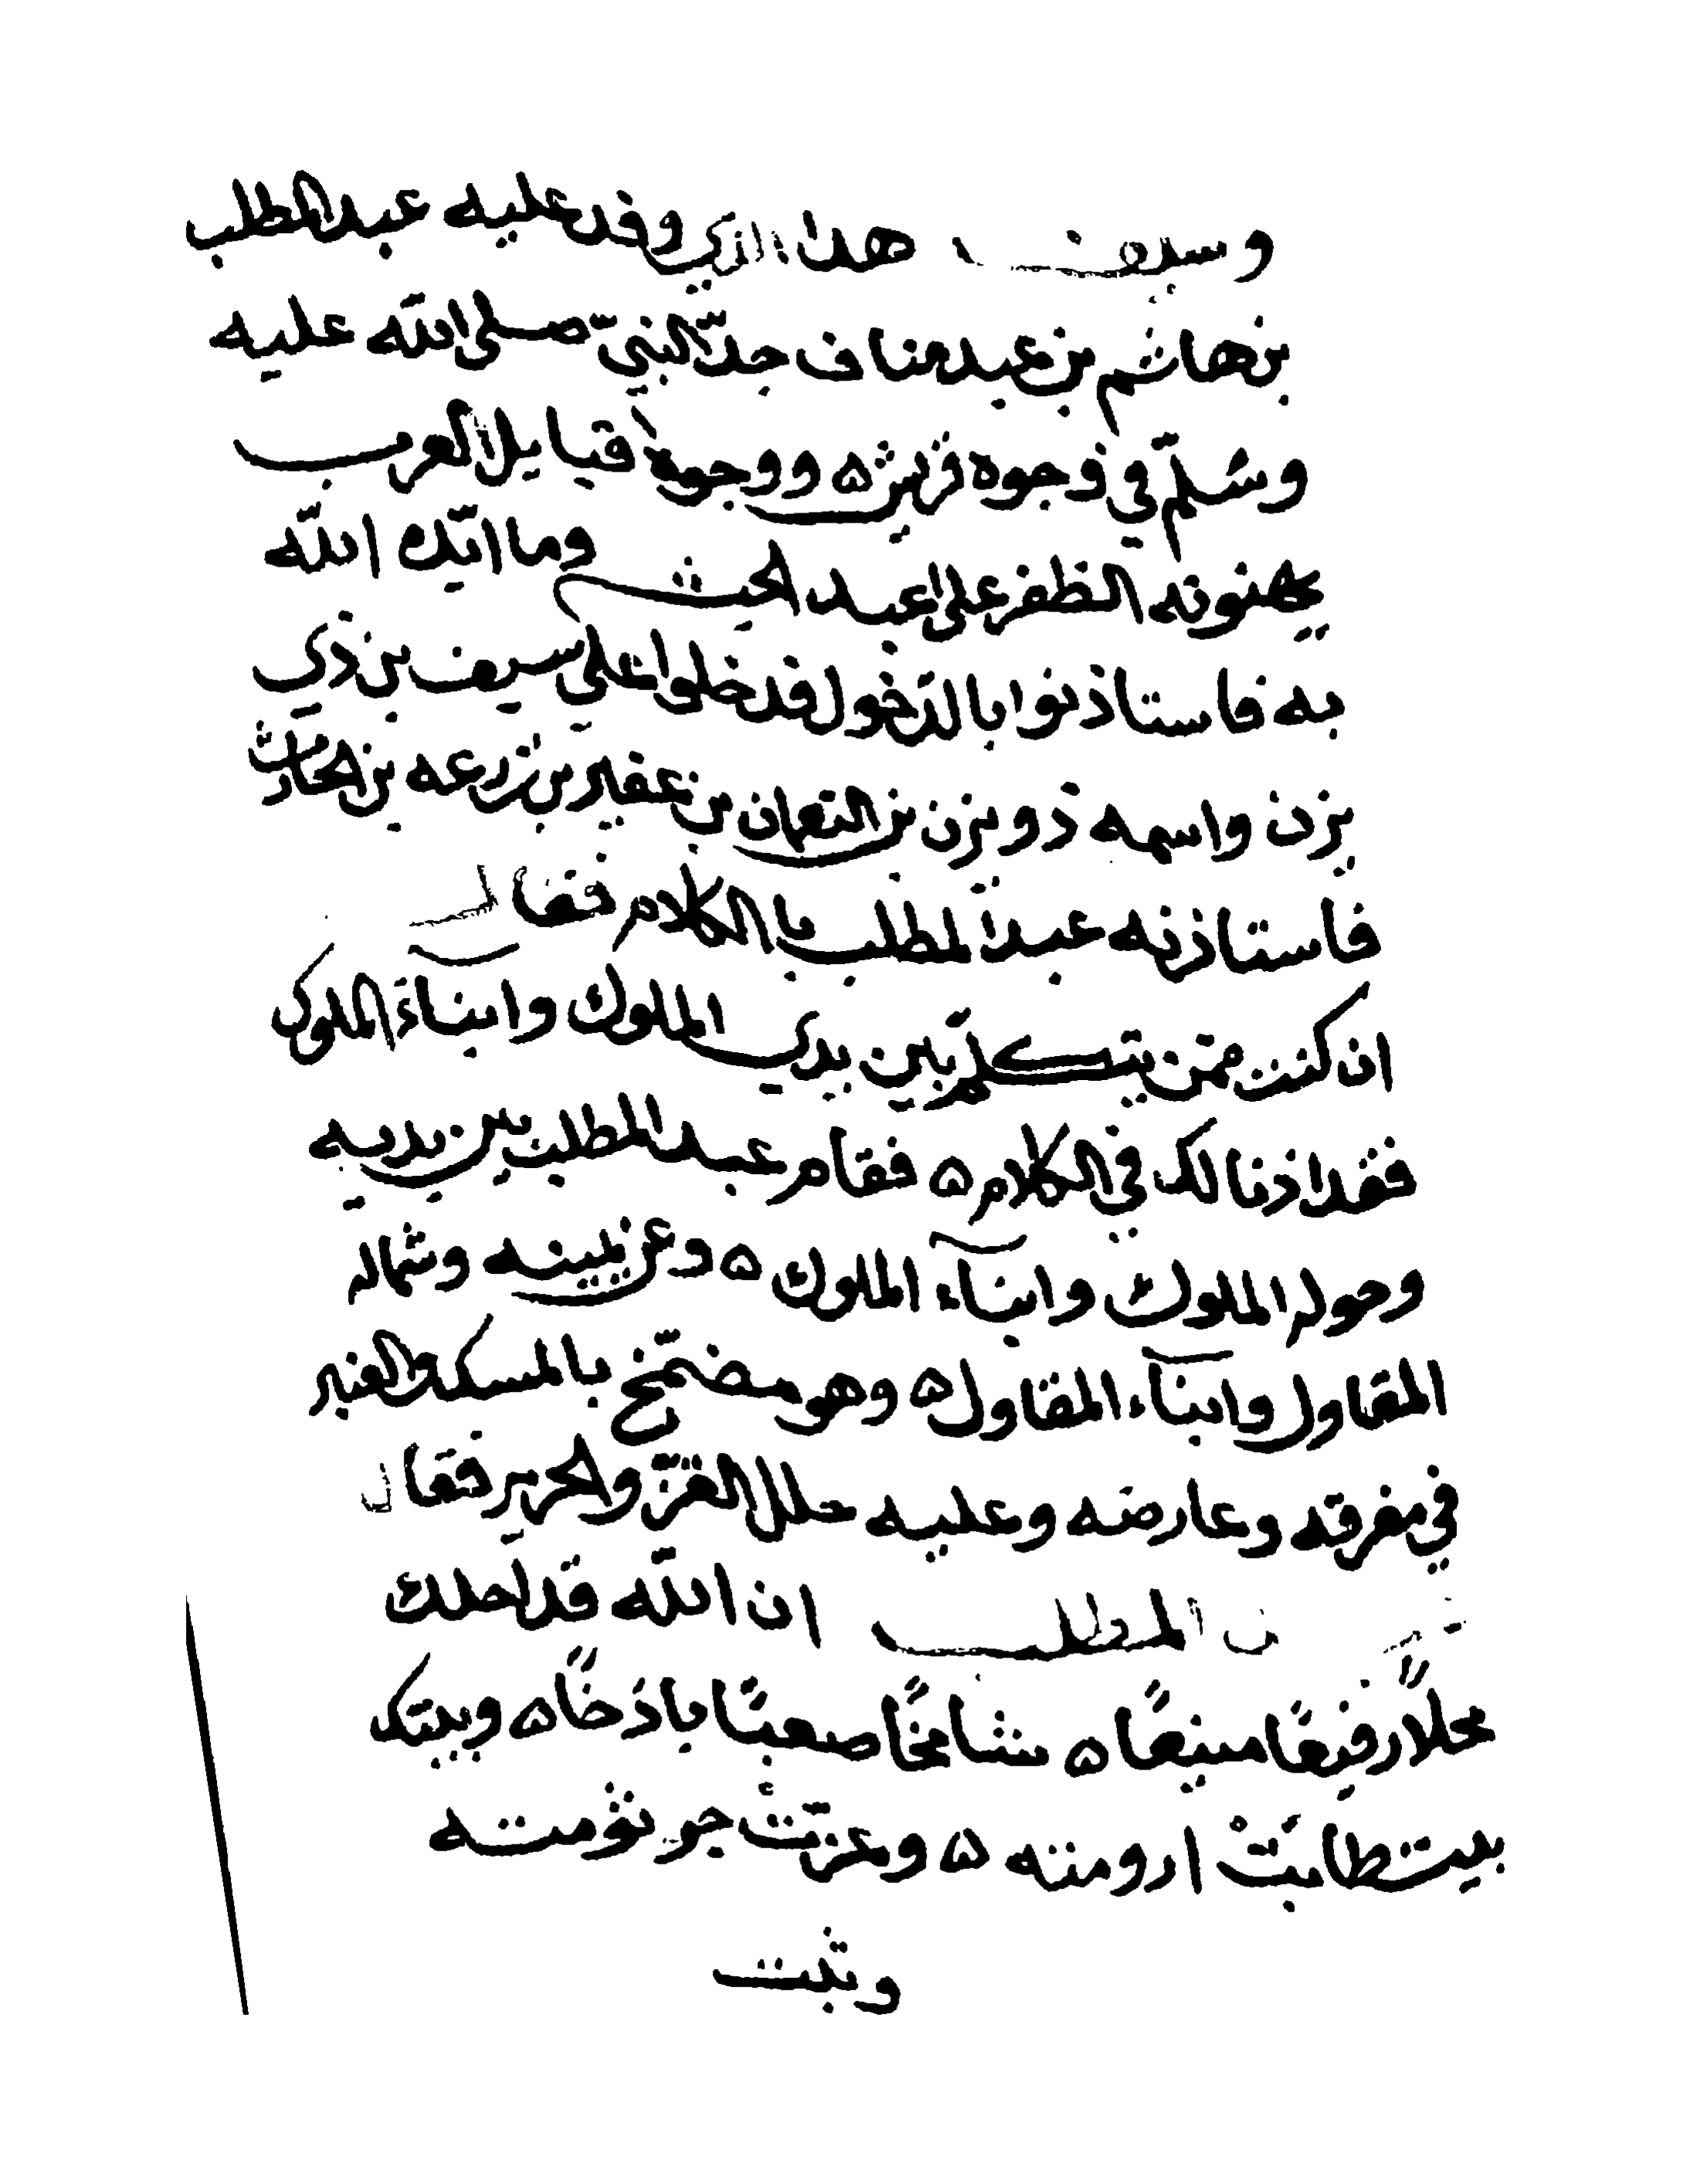 وسيف هذا الذي وفد عليه عبد المطلب
بن هاشم بن عبد مناف جدّ النبيّ صلى الله عليه
وسلّم في وجوه قريش ه ووجوه قبايل العرب
يهنونه الظفر على اعبد الحبشه وما ايّده الله
به فاستاذنوا بالدّخول فدخلوا على سيف بن ذي
يزن واسمه ذو يزن بن النعمان بن عفير بن زرعه بن الحارث
فاستاذنه عبد المطلب بالكلام فقال
ان كنت ممّن يتكلّم بين يدي الملوك وابناء الملوك
فقد اذنا لك في الكلام ه فقام عبد المطلب بين يديه
وحوله الملوك وابناء الملوك ه وعن يمينه وشماله
المقاول وابناء المقاول ه وهو مضمّخ بالمسك والعنبر
في مفرقه وعارضه وعليه حلل القزّ والحرير فقال
المطلب ان الله قد احلك
محلًا رفيعًا منيعًا ه شامخًا صعبًا باذخًا ه وبيتك
بيت طابتْ ارومته ه وعزّتْ جرثومته
وثبت